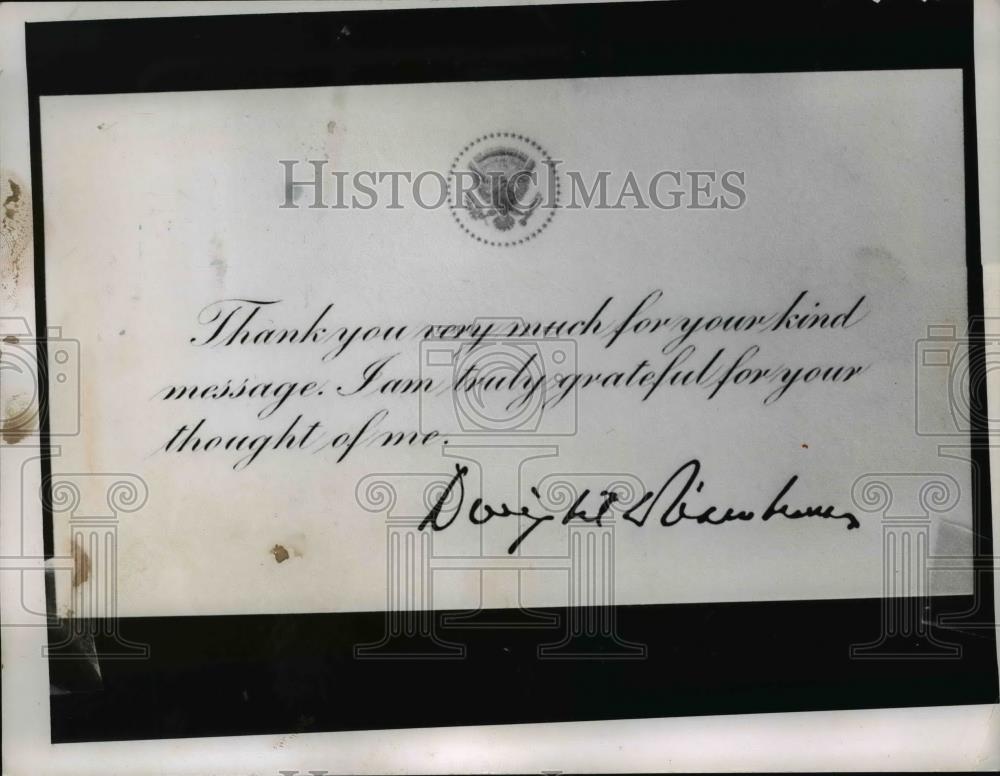 HISTORIC IMAGES
Thank you very much for your kind
message. I am truly grateful for your
thought of me.
Dwight D Eisenhower